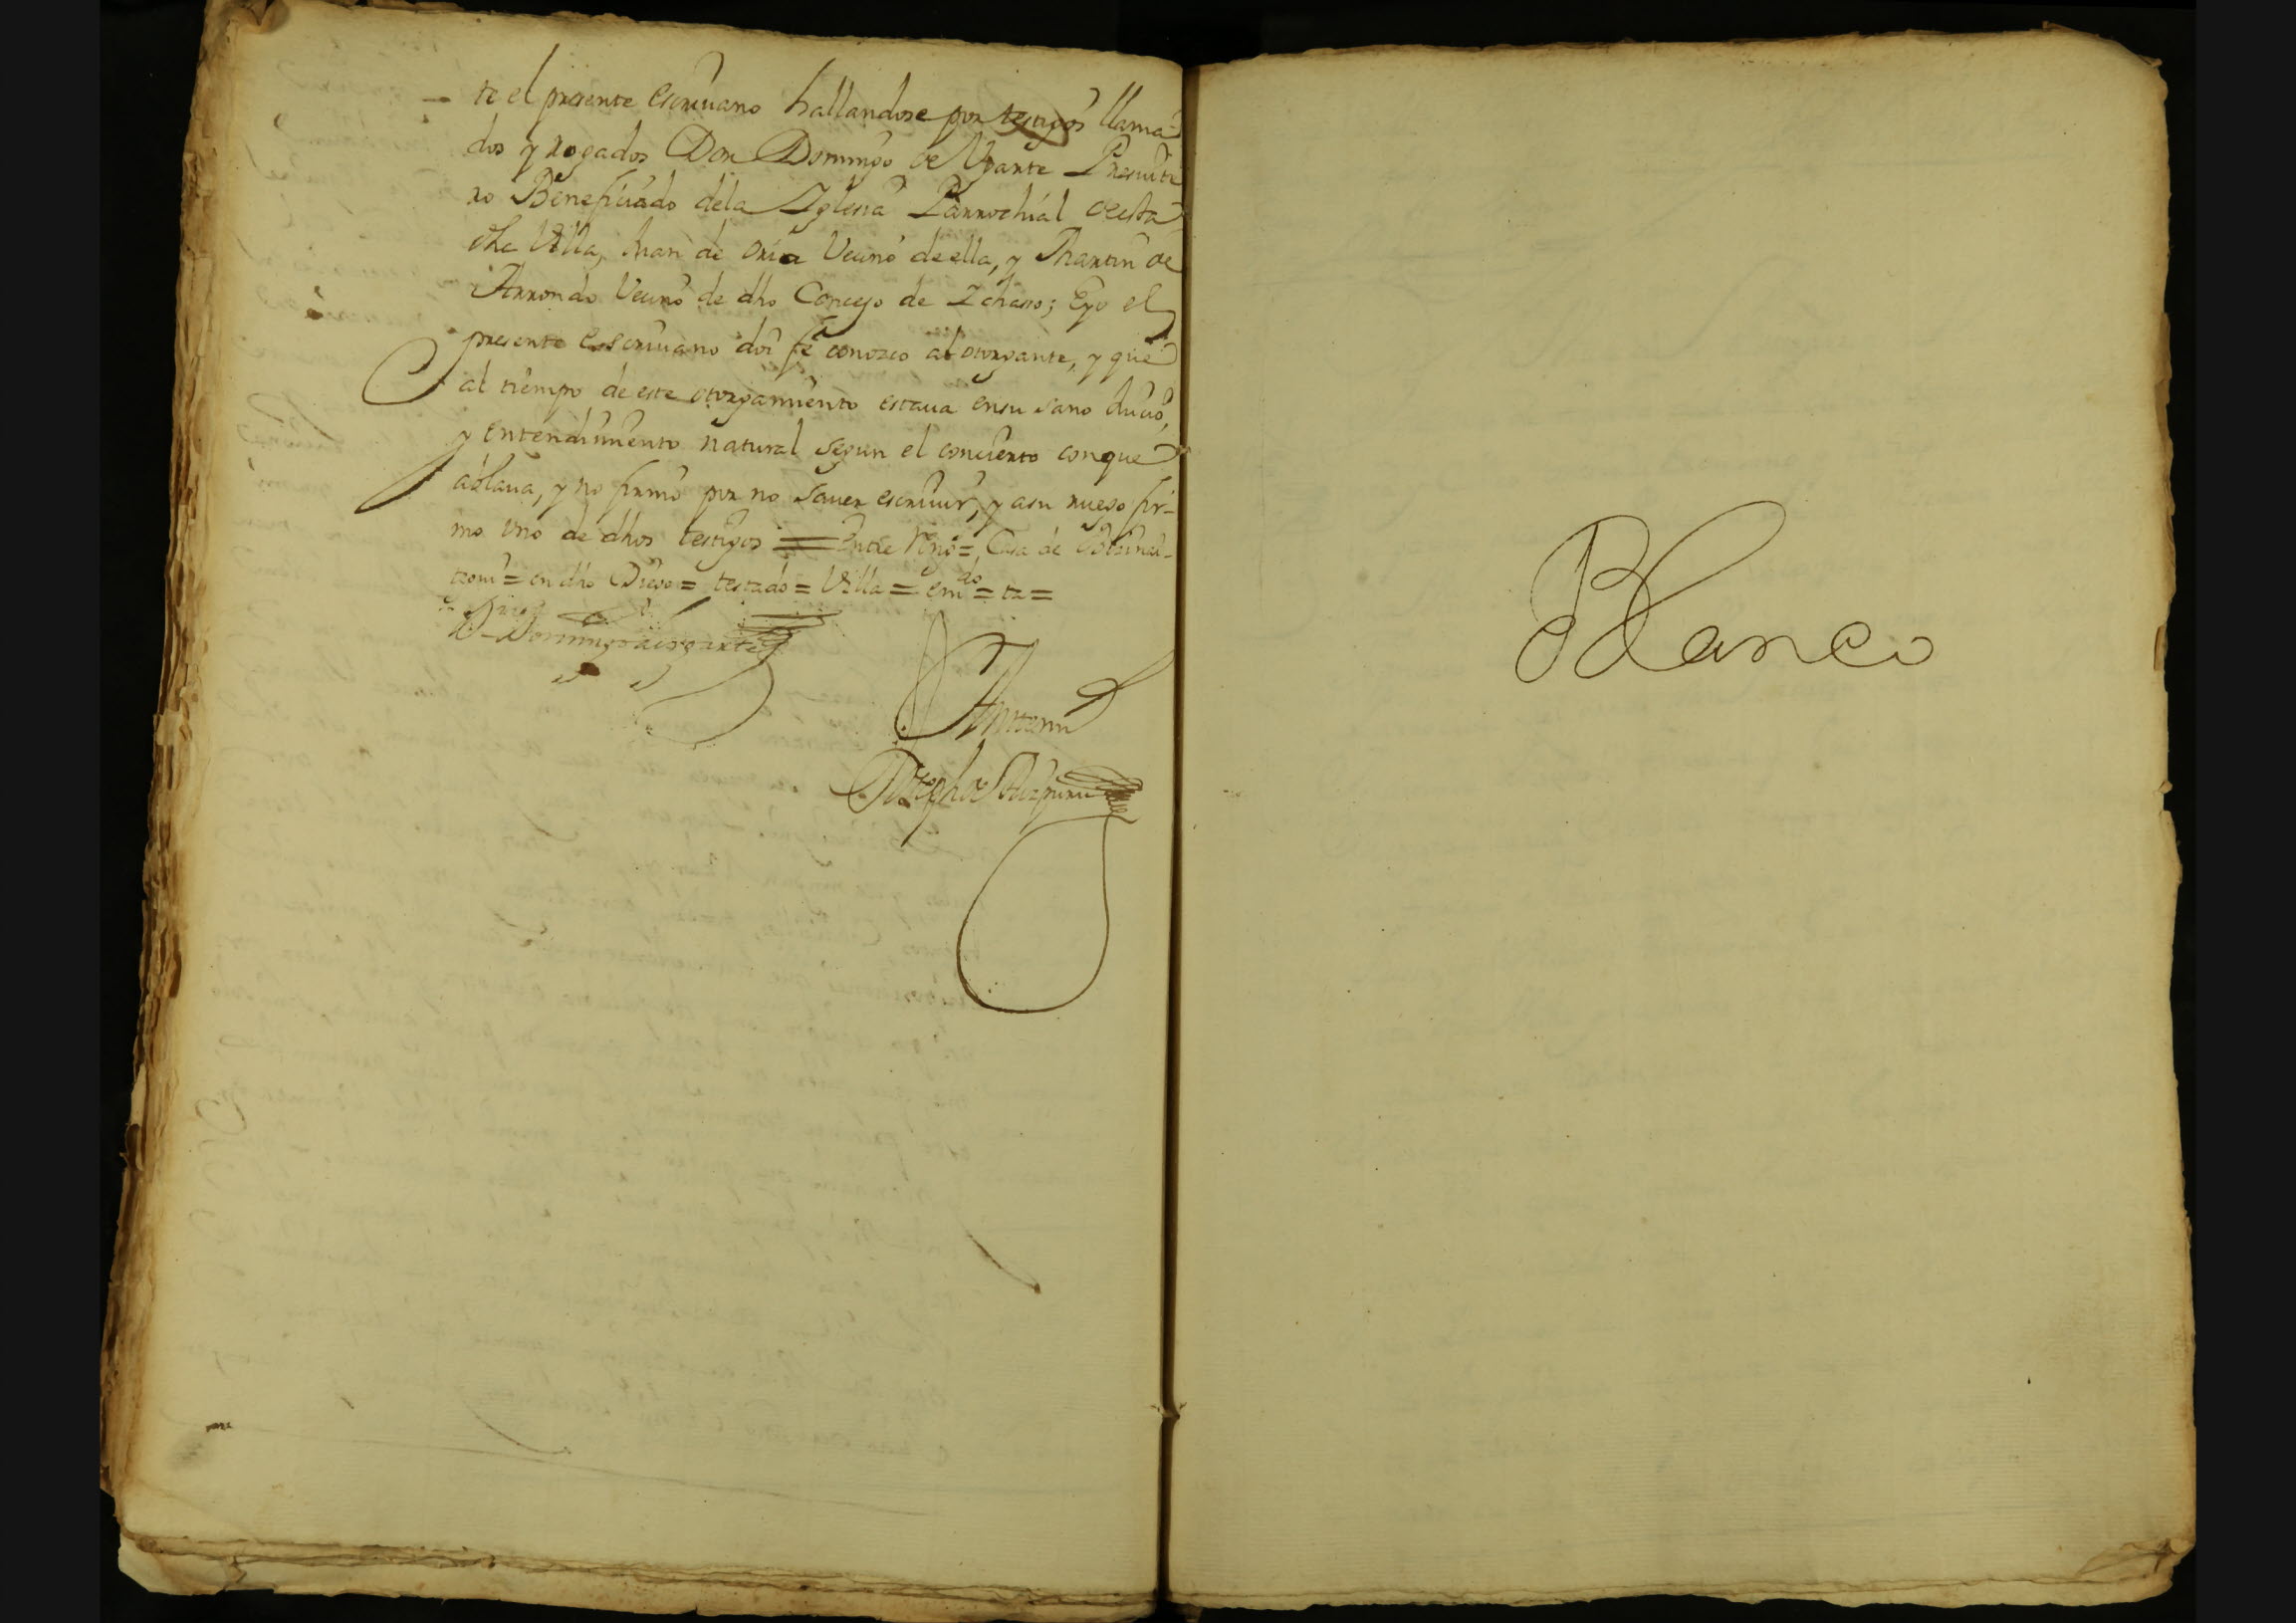 te el presente escriuano hallandose por testigos llama-
dos y rogados Don Domingo de Ugarte Presuite
ro Beneficiado dela Iglesia Parrochial desta
dha Villa, Juan de Oria Vecino de ella, y Martin de
Arrondo Vecino de dho Concejo de Ichaso; Eyo el
presente escriuano doi fe conozco al otorgante, y que
al tiempo de este otorgamiento estaua ensu sano Juicio,
y entendimiento natural segun el concierto conque
ablaua, y no firmo por no sauer escriuir, y asu ruego fir-
mo uno de dhos testigos = Entre Rnes = Casa de
= en dho = testado = Villa = emdo = ta =
Dn Domingo de Ugarte
Antemi
Joseph de Aizpuru
Blanco